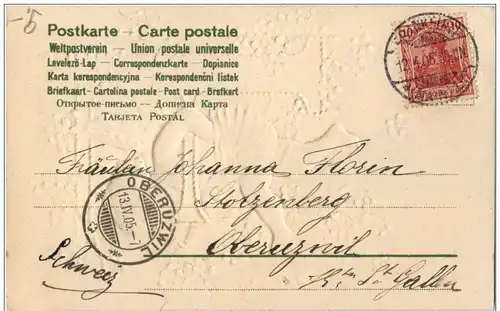 -5
Postkarte — Carte postale
Weltpostverein — Union postale universelle
Levelező-Lap — Correspondenzkarte — Dopisnice
Karta korespondencyjna — Korespondenční listek
Briefkaart - Cartolina postale - Post card - Brefkort
Открытое письмо — Дописна Карта
Tarjeta Postal
12.4.05
Fräulein Johanna Florin
Stolzenberg
OBERUZWIL
13.IV.05.-7
Oberuzwil
Schweiz
Ktn St. Gallen